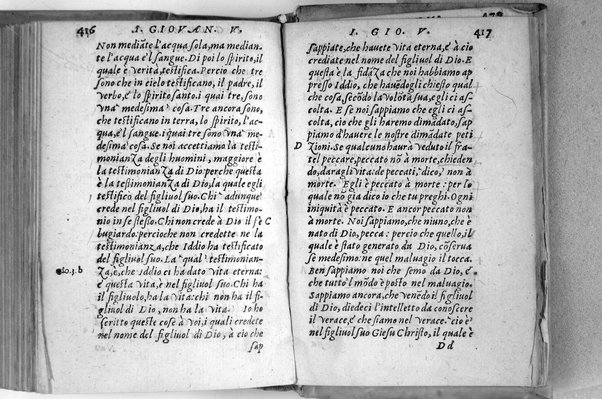 416 I. GIOVAN. V.
Non mediāte l'acqua sola, ma median-
te l'acqua e'l sangue. Di poi lo spirito, il
quale è verità, testifica. Percio che tre
sono che in cielo testificano, il padre, il
verbo, e lo spirito santo: i quai tre, sono
vna medesima cosa. Tre ancora sono,
che testificano in terra, lo spirito, l'ac-
qua, e'l sangue. i quai tre sono vna me-
desima cosa. Se noi accettiamo la testi-
monianza degli huomini, maggiore è
la testimonianza di Dio: perche questa
è la testimonianza di Dio, la quale egli
testificò del figliuol suo. Chi adunque
crede nel figliuol di Dio, ha il testimo-
nio in se stesso. Chi non crede à Dio il fè C
bugiardo: percioche non credette ne la
testimonianza, che Iddio ha testificato
del figliuol suo. La qual testimonian-
za, è, che Iddio ci ha dato vita eterna:
è questa vita, è nel figliuol suo. Chi ha
il figliuolo, ha la vita: chi non ha il fi-
gliuol di Dio, non ha la vita. Io ho
scritto queste cose à voi, i quali credete
nel nome del figliuol di Dio, à cio che
sap
I. GIO. V. 417
sappiate, che hauete vita eterna, e à cio
crediate nel nome del figliuol di Dio. E
questa è la fidāza che noi habbiamo ap
presso Iddio, che hauēdogli chiesto qual
che cosa, secōdo la volōtà sua, egli ci as-
colta. E se noi sappiamo che egli ci as-
colta, cio che gli haremo dimādato, sap
piamo d'hauere le nostre dimādate peti
D zioni. Se qualcuno haurà veduto il fra-
tel peccare, peccato nō à morte, chieden
do, daragli vita: de peccati, dico, non à
morte. Egli è peccato à morte: per lo
quale nō già dico io che tu preghi. Ogni
iniquità è peccato. E ancor peccato non
à morte. Noi sappiamo, che niuno, che è
nato di Dio, pecca: percio che quello, il
quale è stato generato da Dio, cōserua
se medesimo: ne quel maluagio il tocca.
Ben sappiamo noi che semo da Dio, e
che tutto l mōdo è posto nel maluagio.
Sappiamo ancora, che venēdo il figliuol
di Dio, diedeci l'intelletto da conoscere
il verace, e che siamo nel verace. cio è
nel figliuol suo Giesu Christo, il quale è
D d